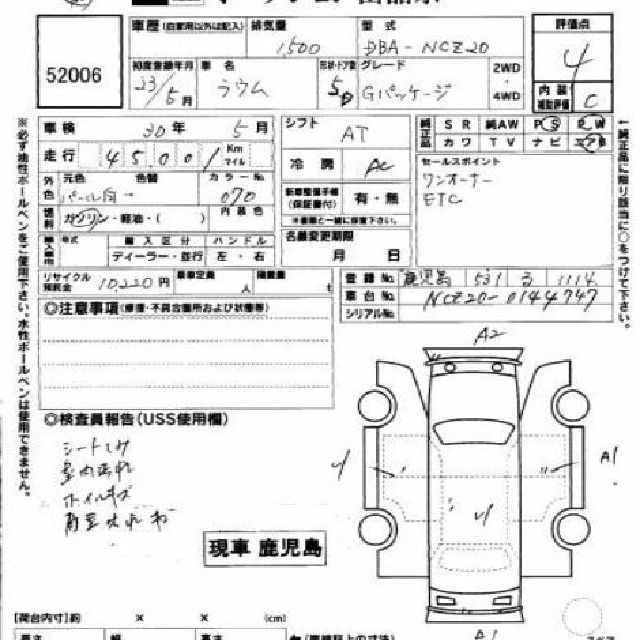 52006
車歴 (自家用以外は記入) 排気量 1,500 型式 DBA-NCZ20
評価点 4
初度登録年月 23/5月 車名 ラウム 形状・ドア数 5D グレード Gパッケージ 2WD 4WD
内装補助評価 C
車検 30年 5月 シフト AT
純正品 SR 純AW PS PW
カワ TV ナビ エアB
走行 45001 Km マイル 冷房 AC
セールスポイント
ワンオーナー
ETC
外色 元色 パール白 色替 → カラーNo. 070
新車整備手帳(保証書付) 有・無
燃料 ガソリン・軽油・( ) 内装色
名義変更期限
月 日
輸入車 年式 輸入区分 ハンドル
ディーラー・並行 左・右
リサイクル預託金 10,220円 乗車定員 人 積載量 t
登録No. 鹿児島 531 ろ 1114
車台No. NCZ20-0144747
シリアルNo.
◎注意事項(修復・不具合箇所および状態等)
※必ず油性ボールペンをご使用下さい。水性ボールペンは使用できません。
↑純正品に限り該当に○をつけて下さい。
◎検査員報告(USS使用欄)
シートシミ
室内汚れ
ホイルキズ
A2
A1
A1
現車 鹿児島
[荷台内寸] × × (cm)
長さ 幅 高さ